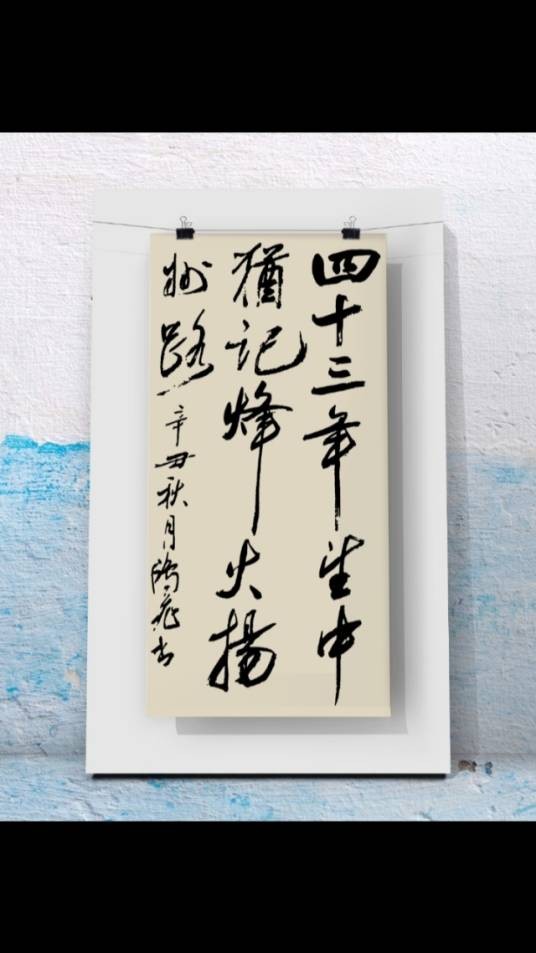 四十三年望中
猶記烽火揚
州路
辛丑秋月书